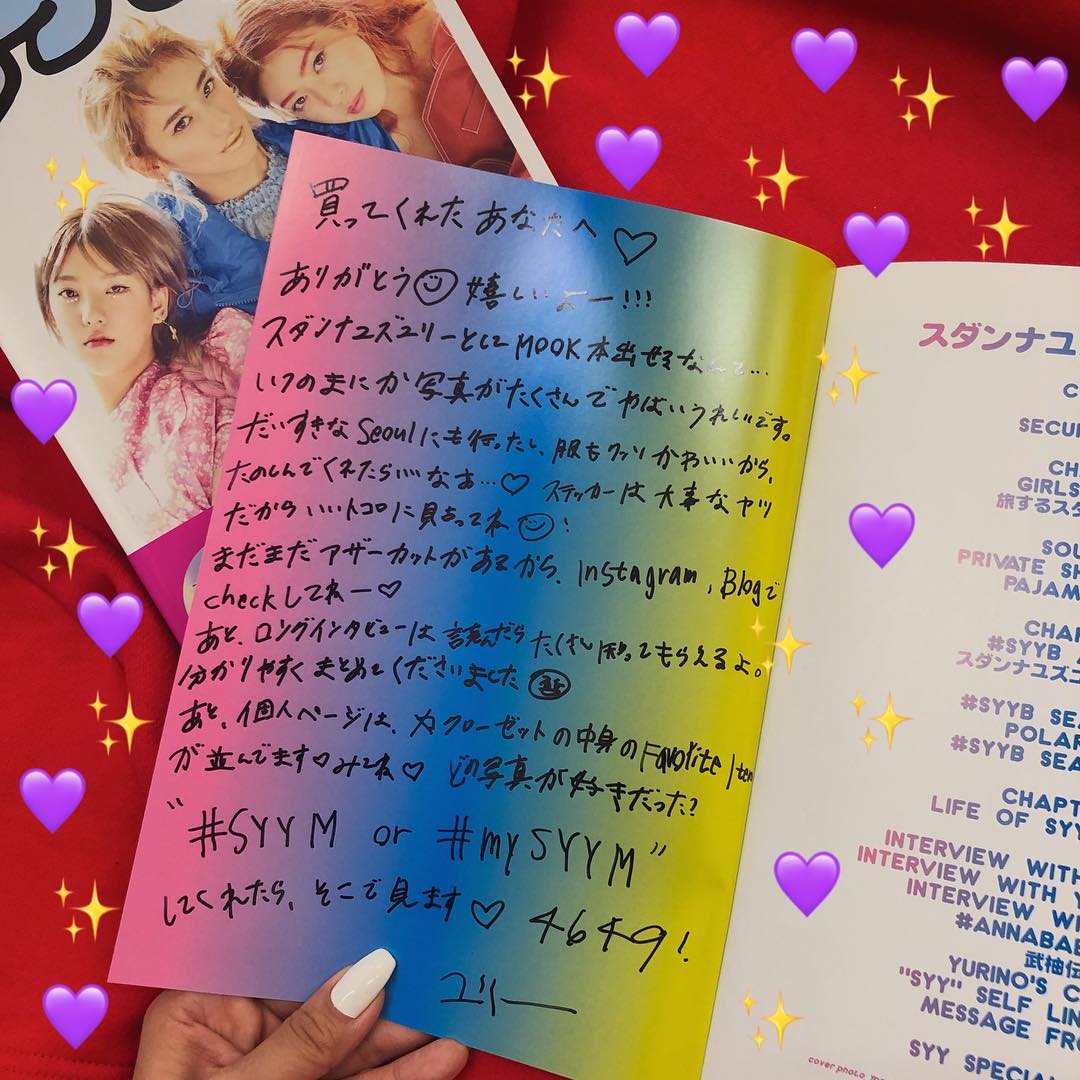 買ってくれた あなたへ♡
ありがとう 嬉しいよー!!!
スダンナユズユリーとして MOOK本出せるなんて...
いつのまにか写真がたくさんでやばいうれしいです。
だいすきなSeoulにも行ったし、服もクソかわいいから、
たのしんでくれたらいいなぁ...♡ ステッカーは大事なヤツ
だからいいトコロに貼ってね !
まだまだアザーカットがあるから、Instagram, Blogで
checkしてねー♡
あと、ロングインタビューは読んだらたくさん知ってもらえるよ。
分かりやすくまとめてくださいました
あと、個人ページは、クローゼットの中身のFavorite Item
が並んでます♡みてね♡ どの写真が好きだった?
"#SYYM or #mySYYM"
してくれたら、そこで見ます♡ 4649!
ユリー
スダンナユ
C
SECU
CH
GIRLS
旅するス
SOU
PRIVATE SH
PAJAM
CHA
#SYYB
スダンナユズユ
#SYYB SEA
POLAR
#SYYB SEA
CHAPT
LIFE OF SY
INTERVIEW WITH
INTERVIEW WITH Y
INTERVIEW WI
#ANNABAB
武神伝
YURINO'S C
"SYY" SELF LIN
MESSAGE FRO
SYY SPECIA
cover photo